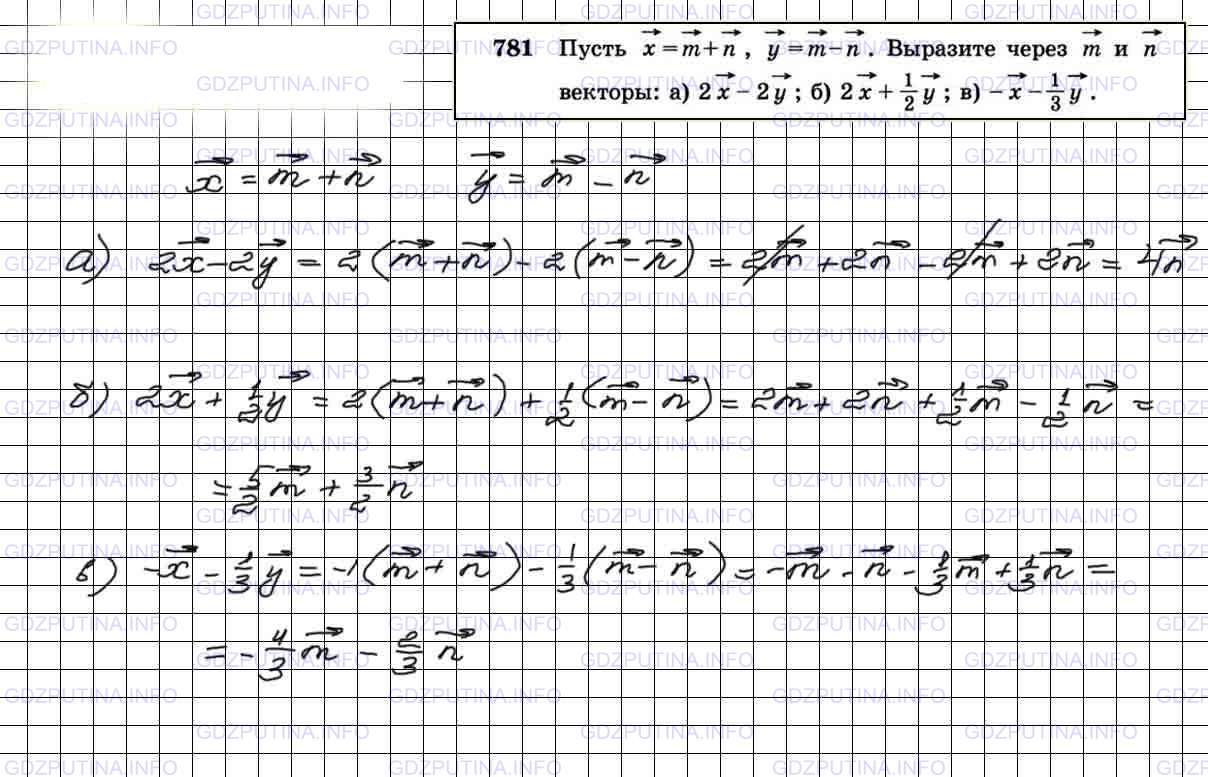 781 Пусть x⃗ = m⃗ + n⃗ , y⃗ = m⃗ − n⃗ . Выразите через m⃗ и n⃗
векторы: а) 2x⃗ − 2y⃗ ; б) 2x⃗ + 1/2 y⃗ ; в) −x⃗ − 1/3 y⃗ .
x⃗ = m⃗ + n⃗ y⃗ = m⃗ − n⃗
а) 2x⃗ − 2y⃗ = 2(m⃗ + n⃗) − 2(m⃗ − n⃗) = 2m⃗ + 2n⃗ − 2m⃗ + 2n⃗ = 4n⃗
б) 2x⃗ + 1/2 y⃗ = 2(m⃗ + n⃗) + 1/2 (m⃗ − n⃗) = 2m⃗ + 2n⃗ + 1/2 m⃗ − 1/2 n⃗ =
= 5/2 m⃗ + 3/2 n⃗
в) −x⃗ − 1/3 y⃗ = −1(m⃗ + n⃗) − 1/3 (m⃗ − n⃗) = −m⃗ − n⃗ − 1/3 m⃗ + 1/3 n⃗ =
= − 4/3 m⃗ − 2/3 n⃗
GDZPUTINA.INFO